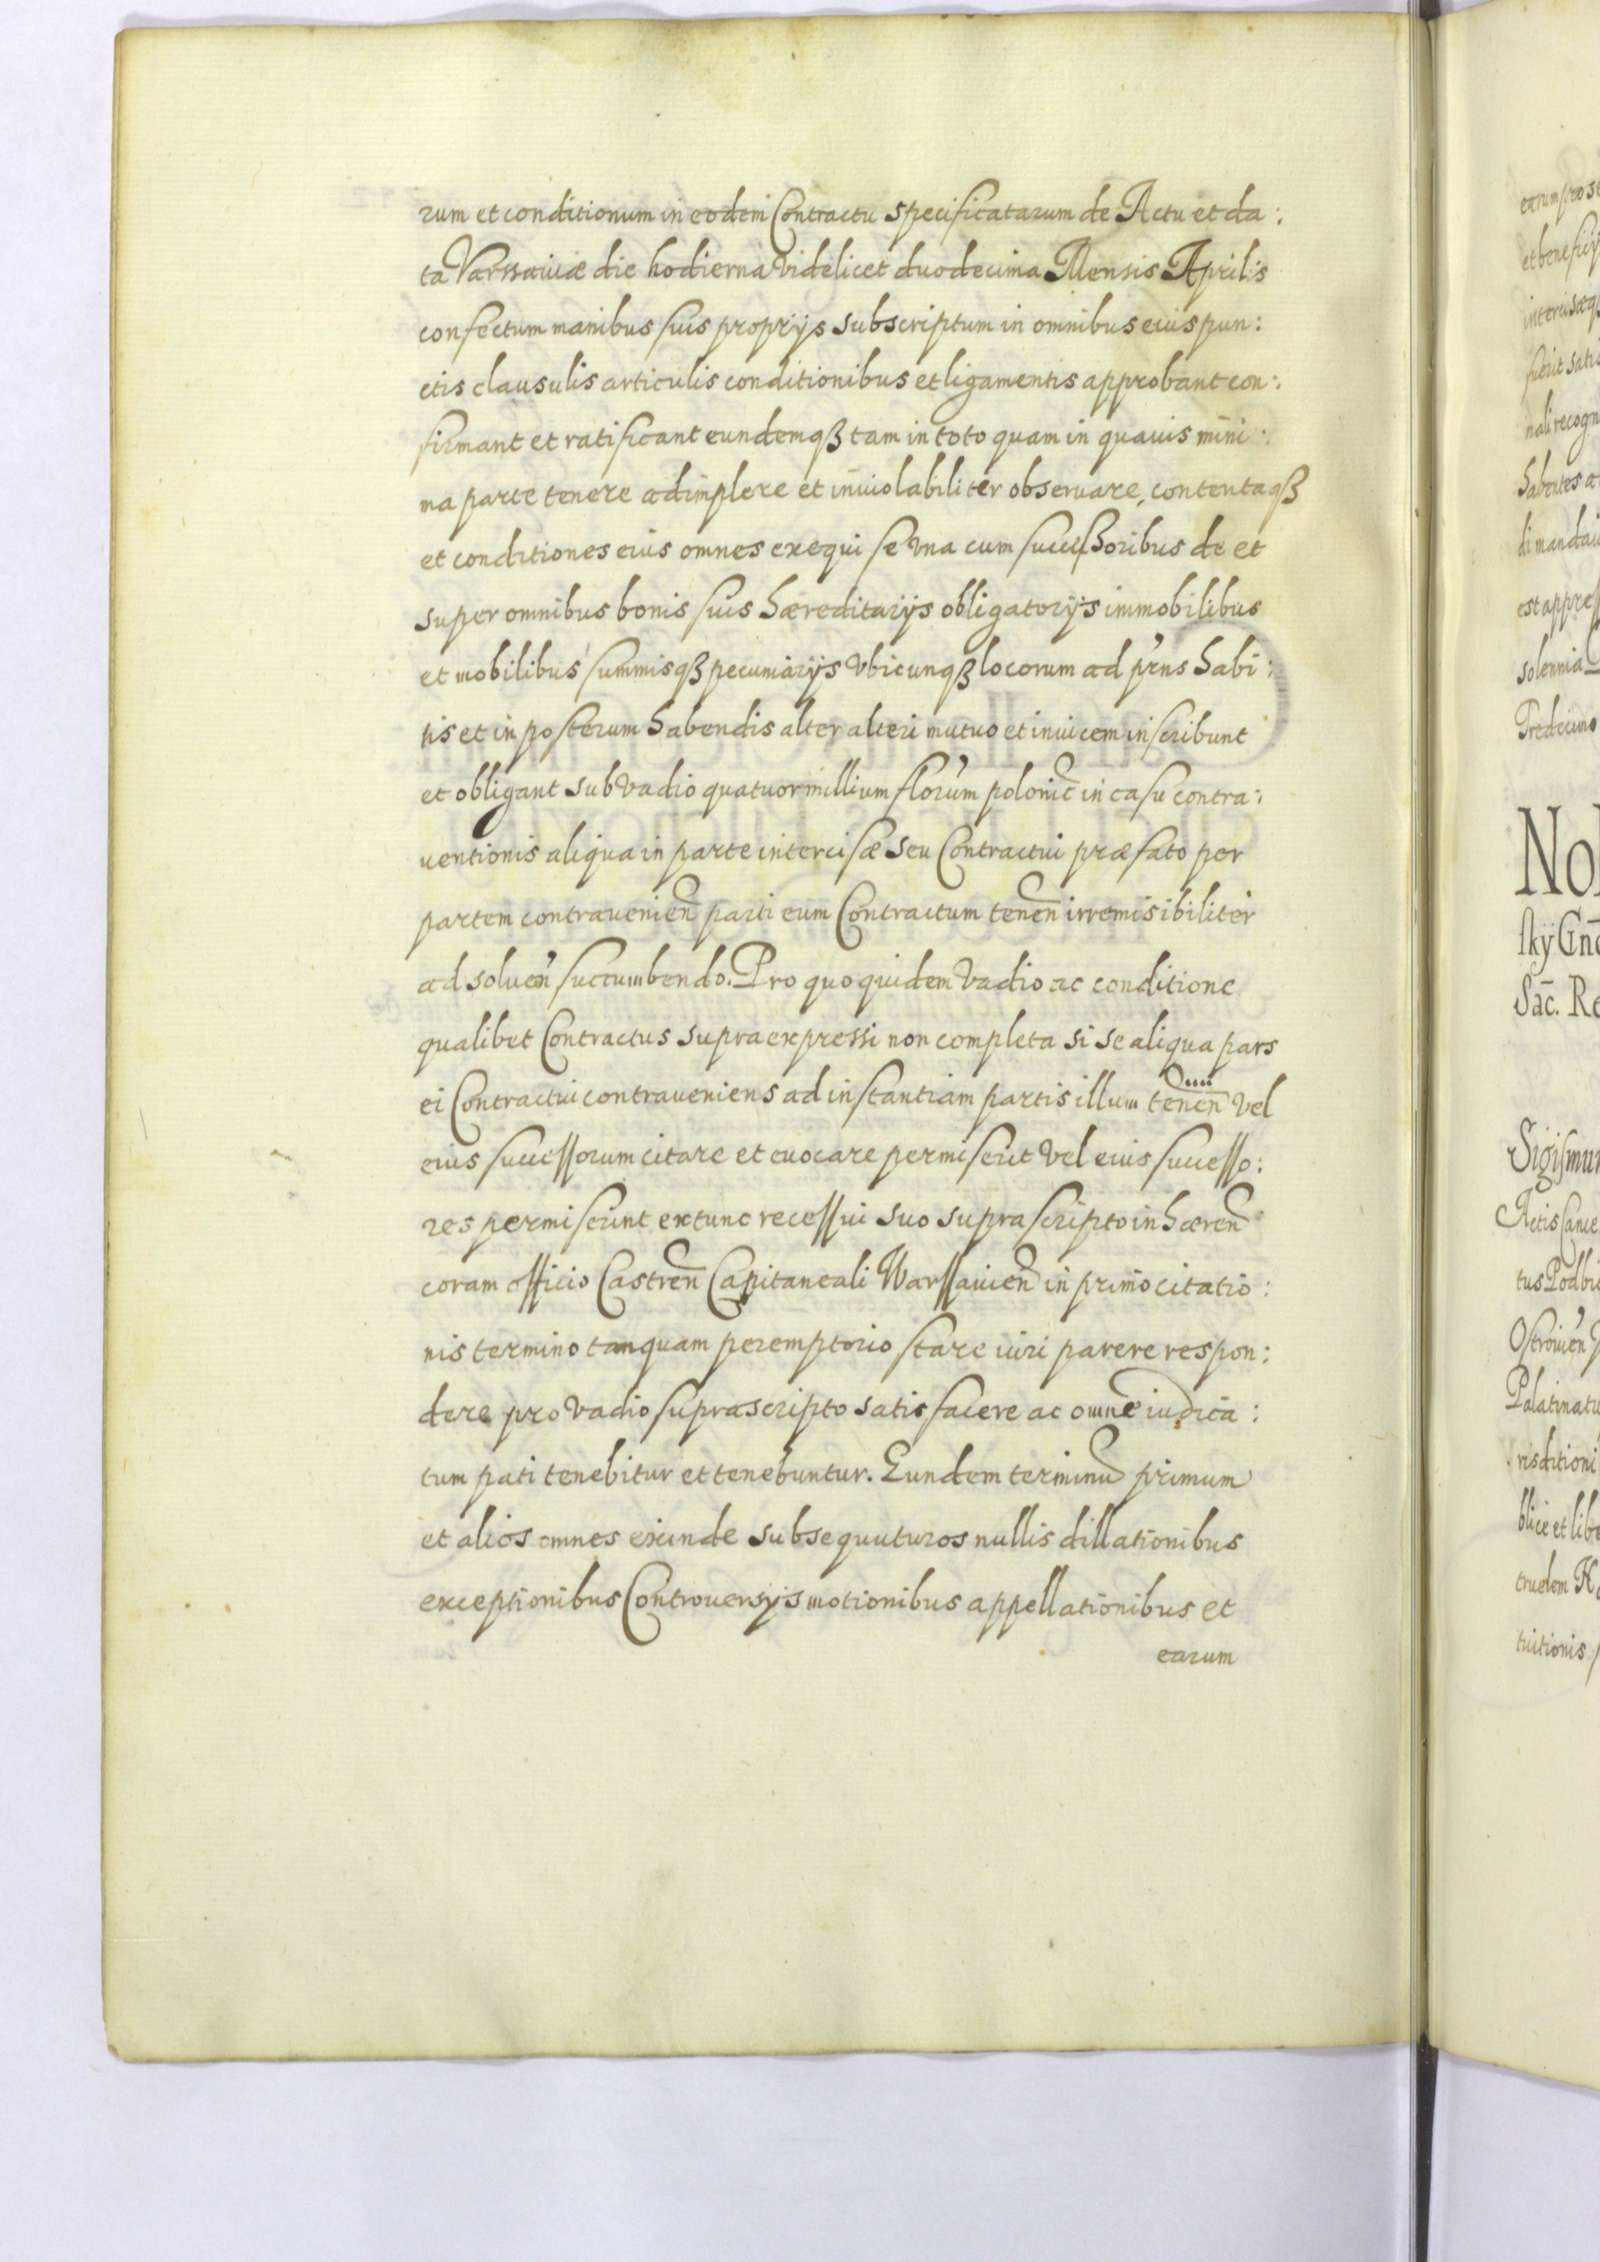 rum et conditionum in eodem Contractu specificatarum de Actu et da:
ta Varssaviæ die hodierna videlicet duodecima Mensis Aprilis
confectum manibus suis proprijs subscriptum in omnibus eius pun:
ctis clausulis articulis conditionibus et ligamentis approbant con:
firmant et ratificant eundemqꝫ tam in toto quam in quavis mini:
ma parte tenere adimplere et inviolabiliter observare, contentaqꝫ
et conditiones eius omnes exequi se vna cum successoribus de et
super omnibus bonis suis hæreditarijs obligatorijs immobilibus
et mobilibus summisqꝫ pecuniarijs vbicunqꝫ locorum ad pr̃ns habi:
tis et in posterum habendis alter alteri mutuo et inuicem inscribunt
et obligant sub vadio quatuor millium flor̃um polonic̃ in casu contra:
uentionis aliqua in parte intercisæ seu Contractui præfato per
partem contravenien̄ parti eum Contractum tenen̄ irremisibiliter
ad soluen̄ succumbendo. Pro quo quidem vadio ac conditione
qualibet Contractus supraexpressi non completa si se aliqua pars
ei Contractui contraueniens ad instantiam partis illum tenen̄ vel
eius successorum citare et euocare permiserit vel eius successo:
res permiserint extunc recessui suo suprascripto inhæren̄
coram officio Castren̄ Capitaneali Warssauien̄ in primo citatio:
nis termino tanquam peremptorio stare iuri parere respon:
dere pro vadio suprascripto satisfacere ac omne iudica:
tum pati tenebitur et tenebuntur. Eundem terminū primum
et alios omnes exinde subsequuturos nullis dillationibus
exceptionibus Controuersijs motionibus appellationibus et
earum
earum
et benefi
fuerit satis
nali recogn
habentes a
di mandavi
est appress
solennia
No
sky Gnō
Sāc. Re
Sigismun
Actis Cance
tus Podbi
Ostrovien̄
Palatinatu
risditioni
blice et libe
truelem
tuitionis